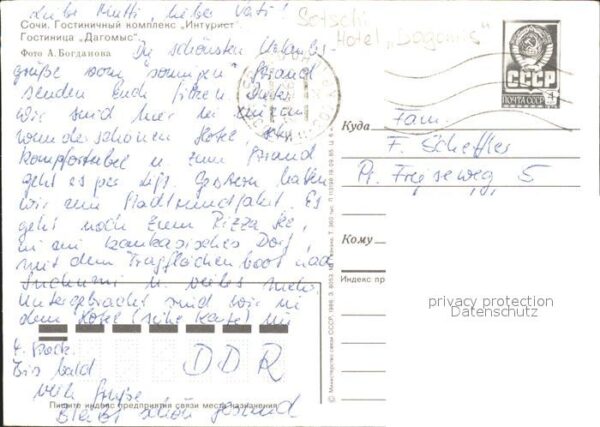 Liebe Mutti, lieber Vati!
Сочи. Гостиничный комплекс „Интурист“.
Гостиница „Дагомыс“.
Фото А. Богданова
Sotschi
Hotel „Dagomys“
Die schönsten Urlaubs-
grüße vom sonnigen Strand
senden Euch
Wir sind hier in einem
wunderschönen Hotel, sehr
komfortabel u. zum Strand
geht es per Lift. Gestern hatten
wir eine Stadtrundfahrt. Es
geht noch zum Rizza See,
in ein kaukasisches Dorf,
mit dem Tragflächenboot nach
Suchumi u. vieles mehr.
Untergebracht sind wir in
dem Hotel (siehe Karte) im
4. Stock.
Bis bald
viele Grüße
bleibt schön gesund
СССР
ПОЧТА СССР
Куда
Fam.
F. Scheffler
Кому
Индекс пр
DDR
Пишите индекс предприятия связи места назначения
© Министерство связи СССР. 1986.
privacy protection
Datenschutz